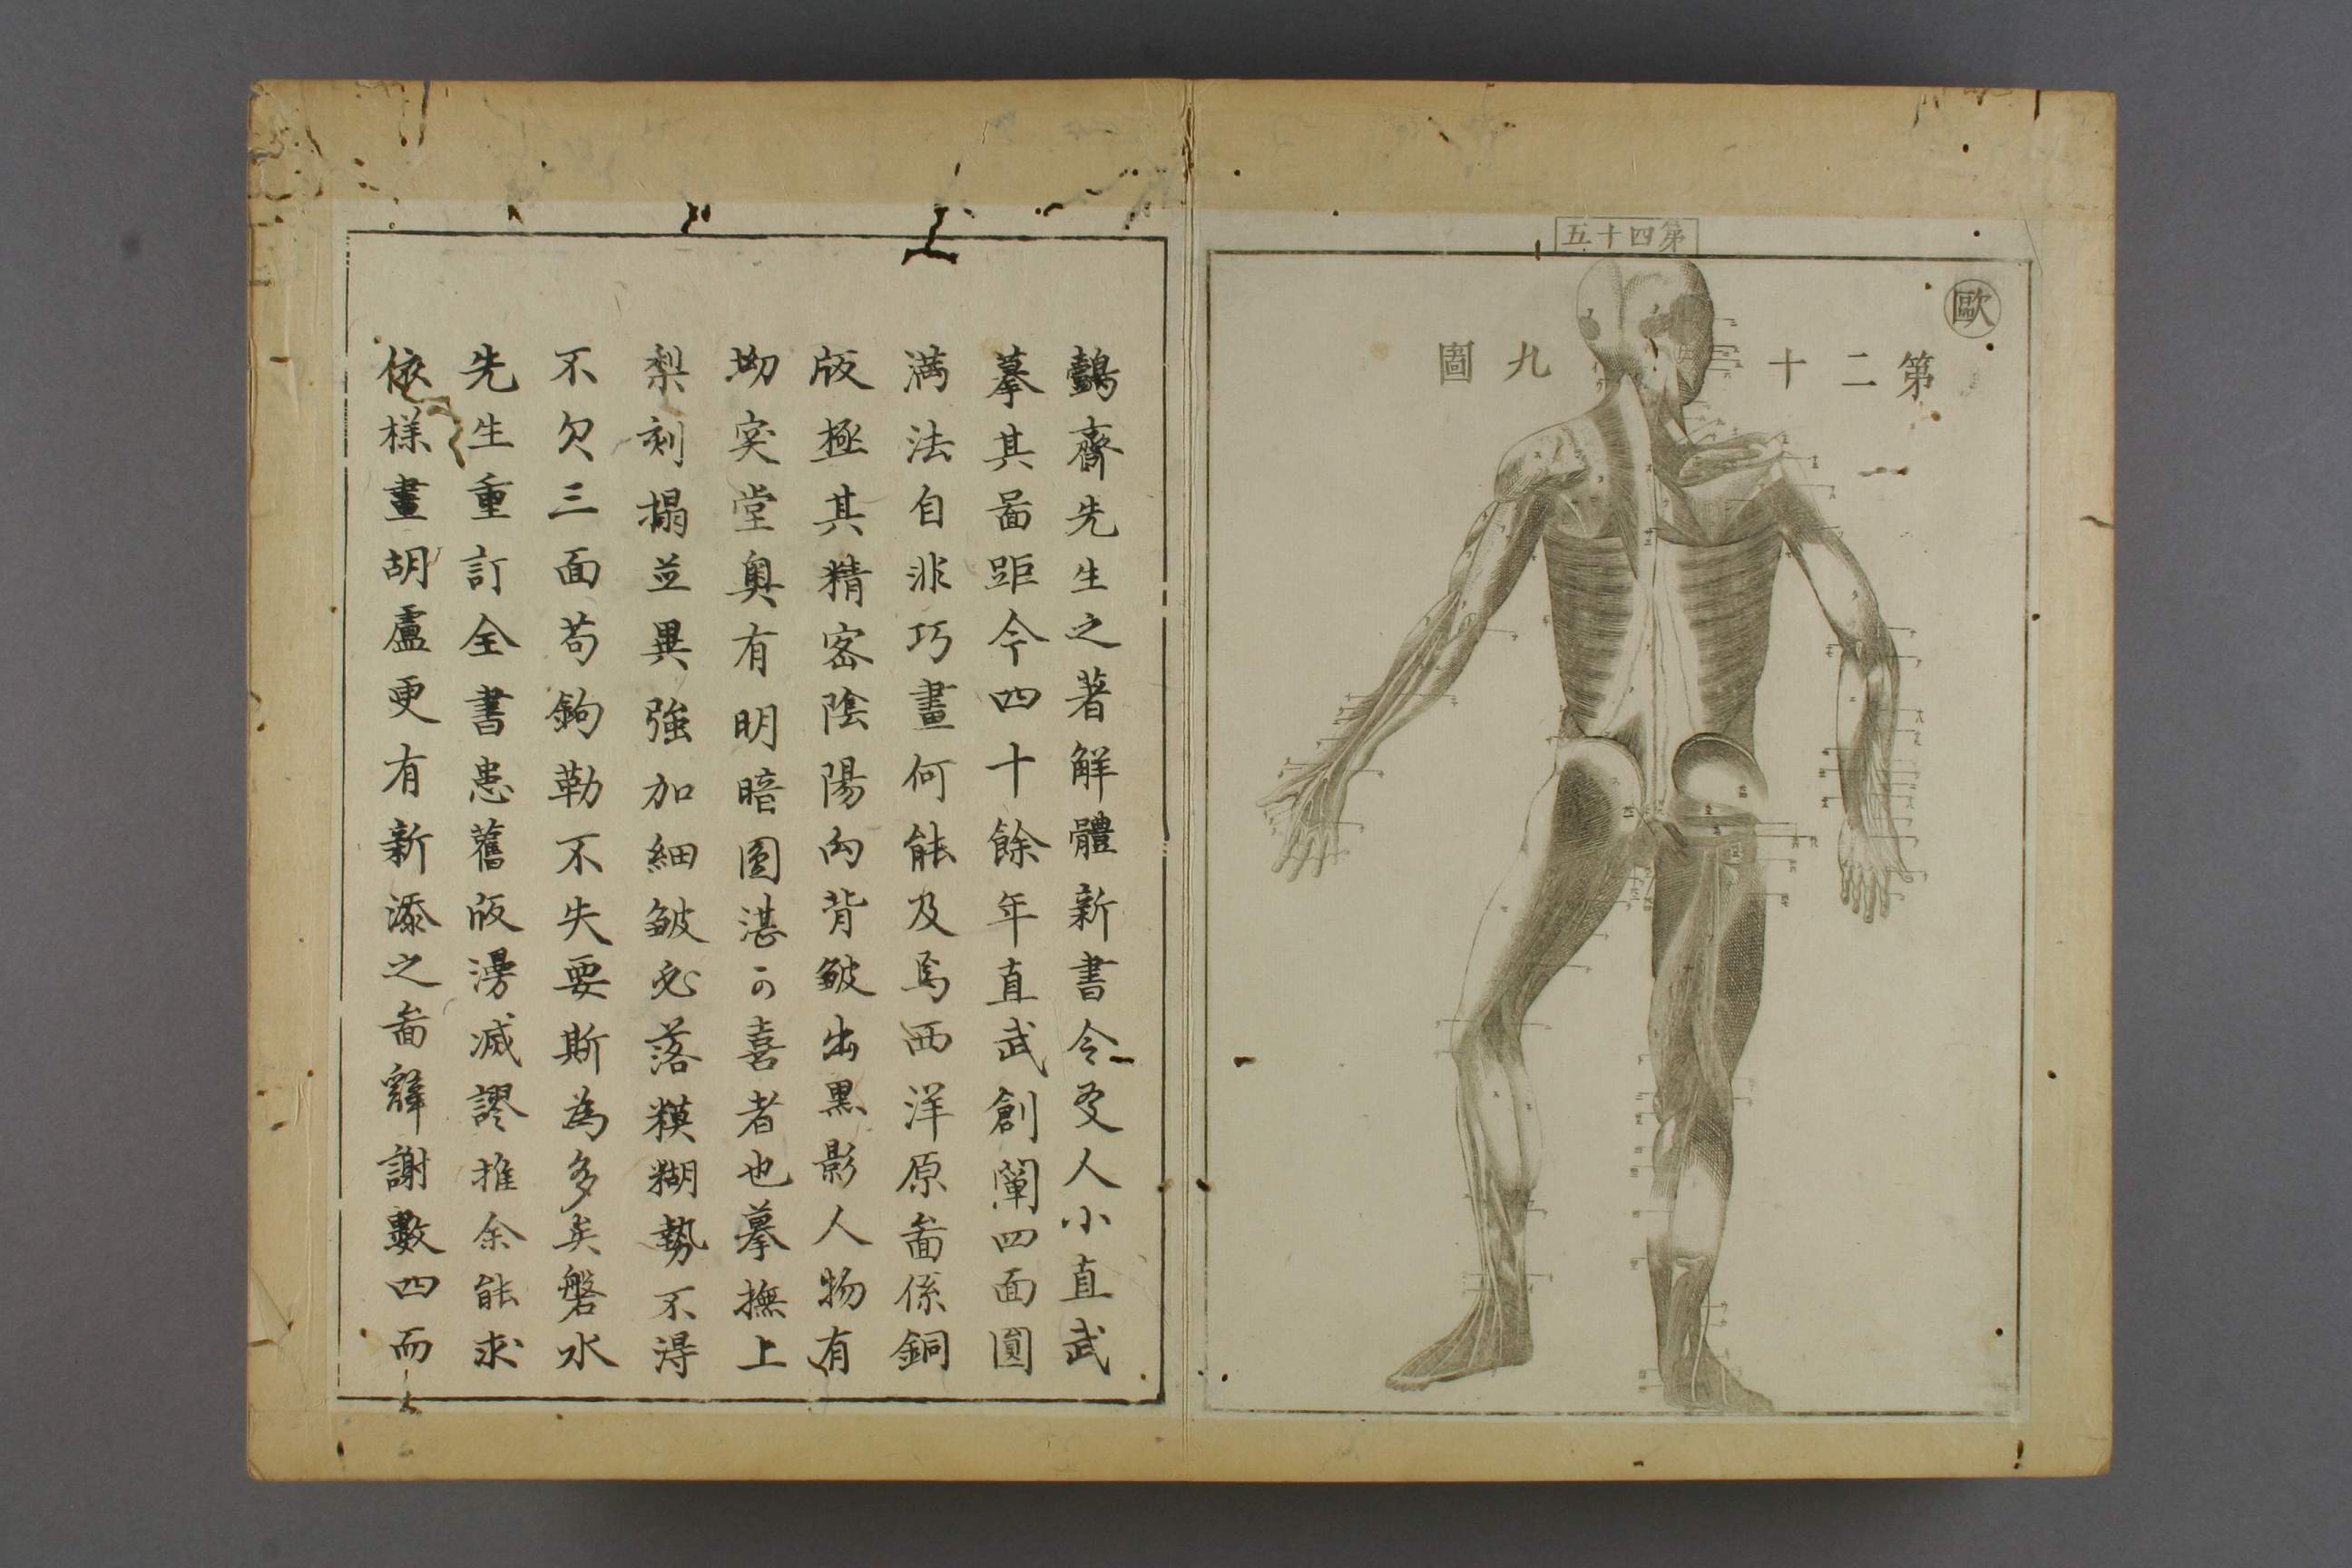 第四十五
歐
第二十九圖
鷧齋先生之著解體新書令友人小直武
摹其啚距今四十餘年直武創闡四面圓
満法自非巧畫何能及焉西洋原啚係銅
版極其精密陰陽向背皴出黒影人物有
坳突堂奥有明暗圖湛可喜者也摹撫上
梨刻搨並異強加細皴必落糢糊勢不得
不欠三面苟鉤勒不失要斯為多矣磐水
先生重訂全書患舊版漫滅謬推余能求
依様畫胡盧更有新添之啚辭謝數四而